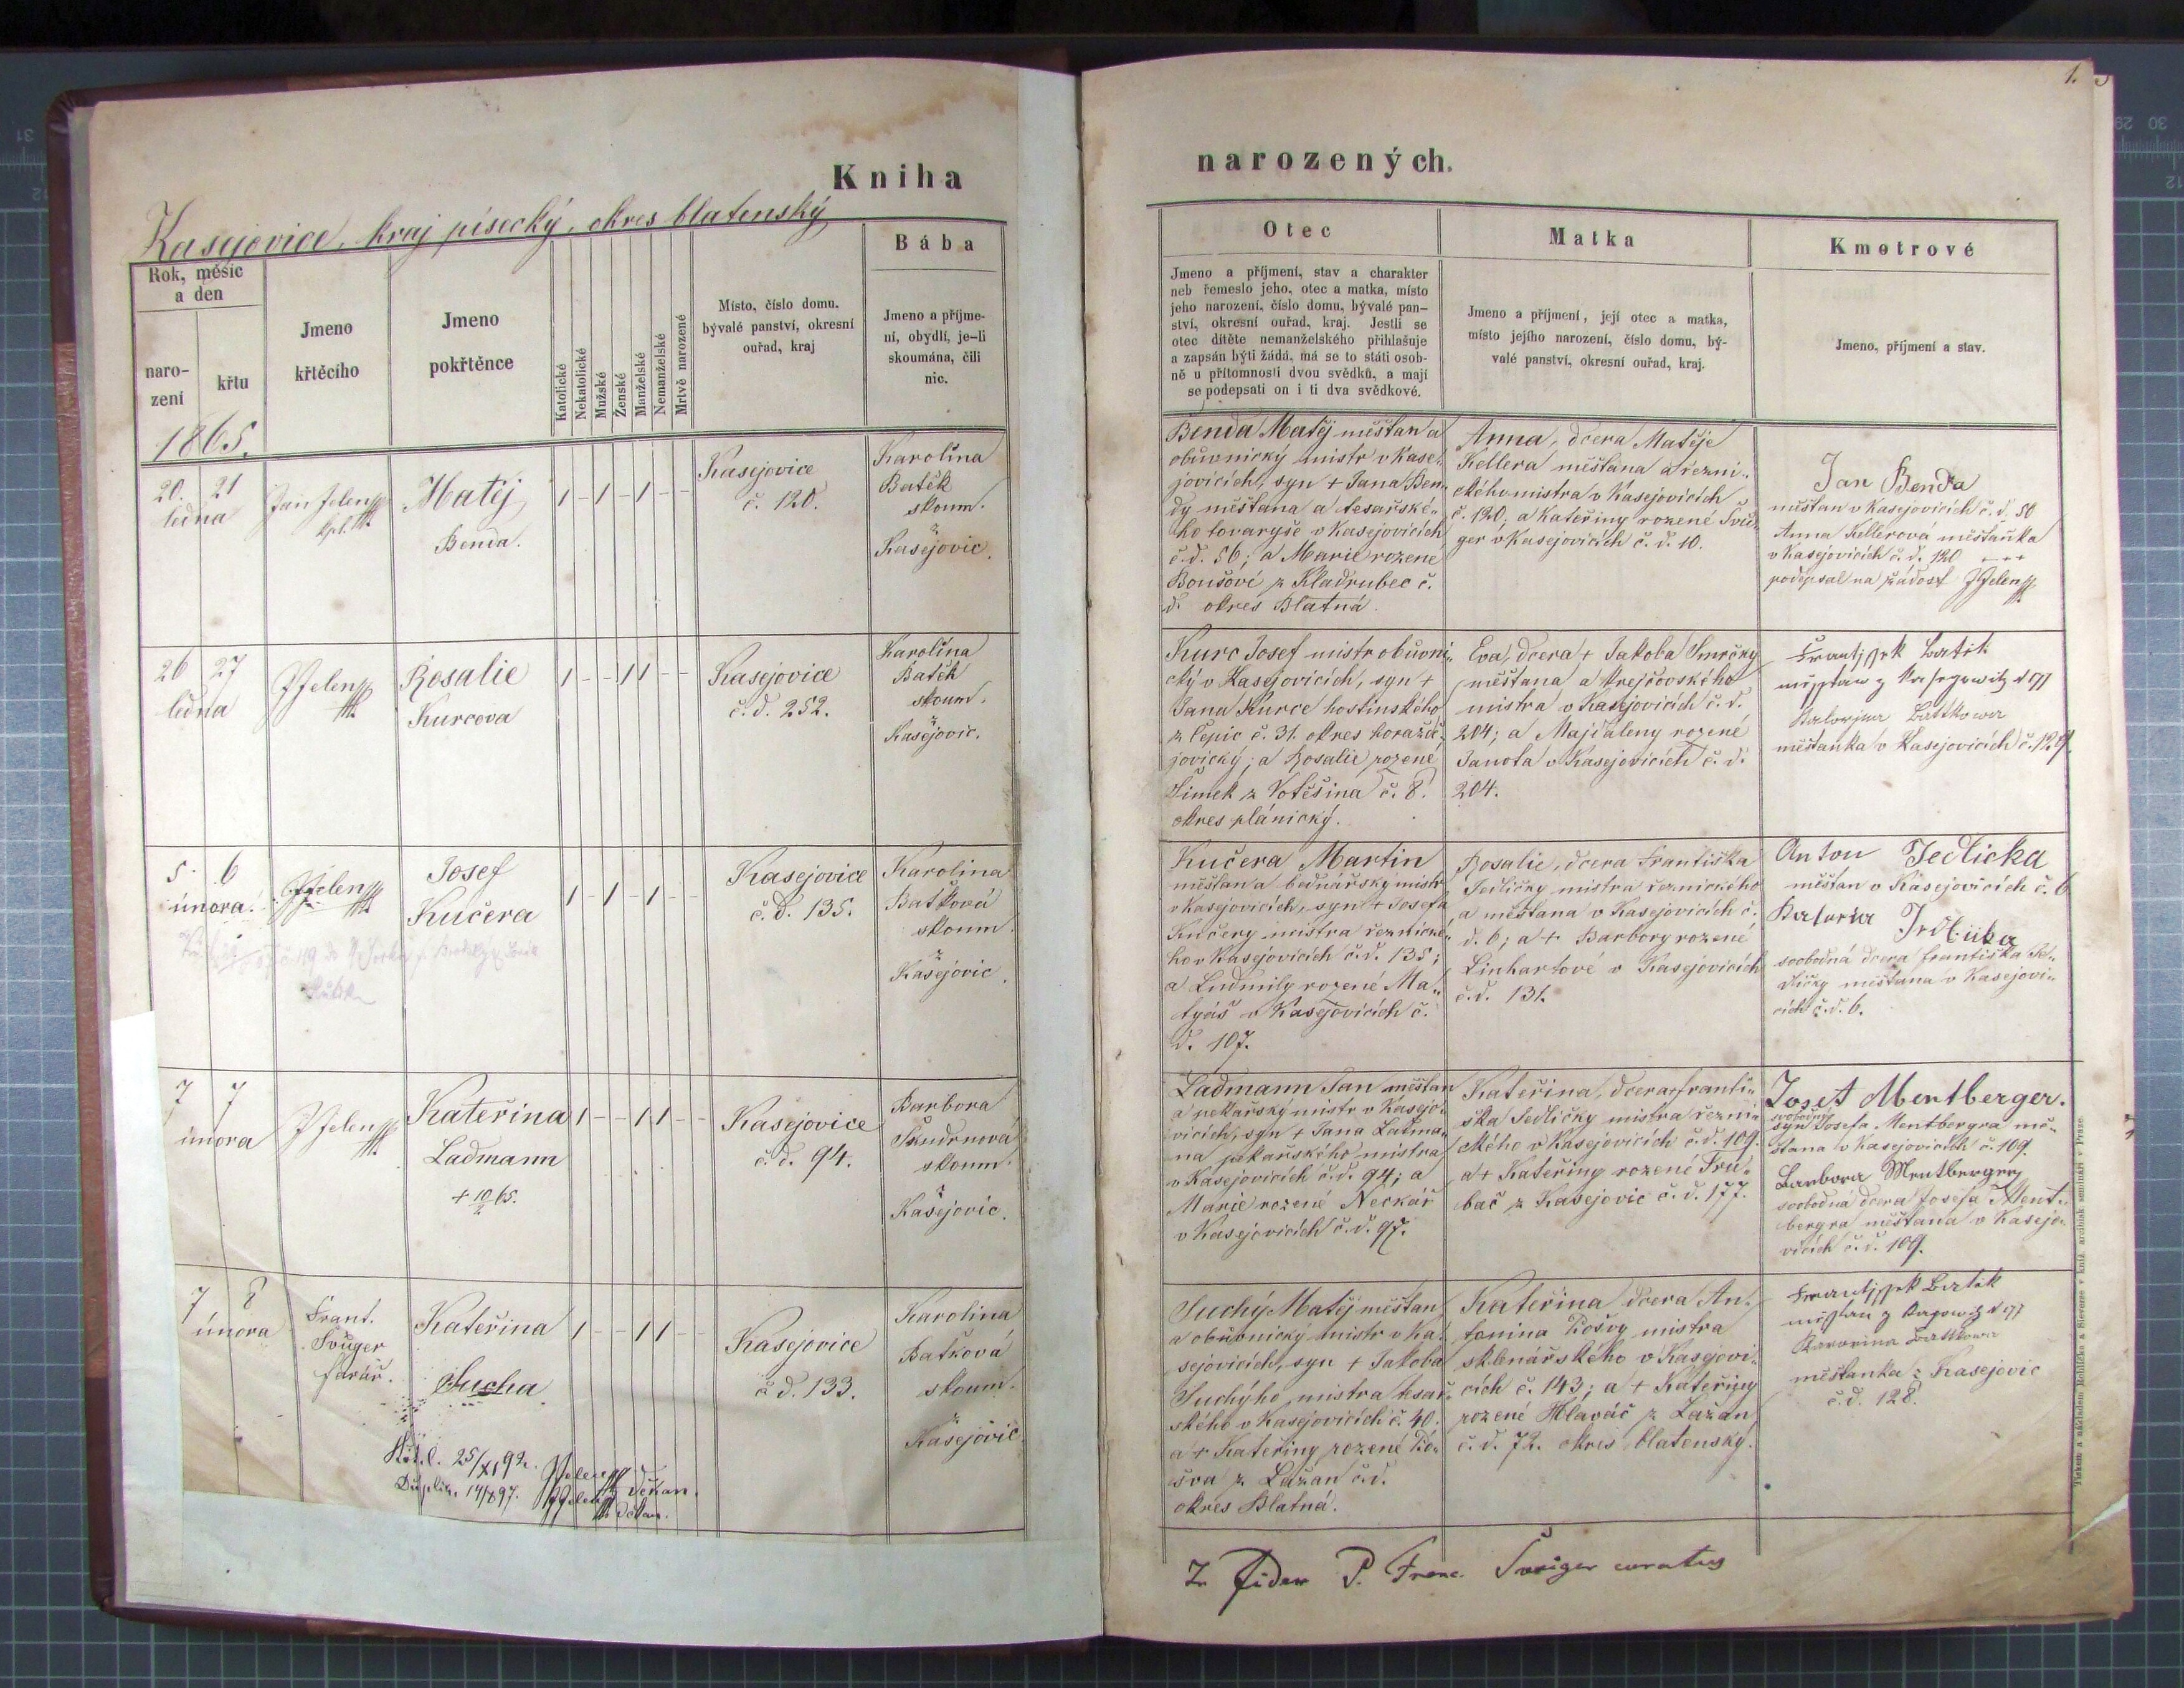 1.
Kniha
narozených.
Kasejovice, kraj písecký, okres blatenský
Rok, měsíc
a den
naro-
zení
křtu
Jmeno
křtěcího
Jmeno
pokřtěnce
Katolické
Nekatolické
Mužské
Ženské
Manželské
Nemanželské
Mrtvě narozené
Místo, číslo domu.
bývalé panství, okresní
ouřad, kraj
Bába
Jmeno a příjme-
ní, obydlí, je-li
skoumána, čili
nic.
Otec
Jmeno a příjmení, stav a charakter
neb řemeslo jeho, otec a matka, místo
jeho narození, číslo domu, bývalé pan-
ství, okresní ouřad, kraj. Jestli se
otec dítěte nemanželského přihlašuje
a zapsán býti žádá, má se to státi osob-
ně u přítomnosti dvou svědků, a mají
se podepsati on i ti dva svědkové.
Matka
Jmeno a příjmení, její otec a matka,
místo jejího narození, číslo domu, bý-
valé panství, okresní ouřad, kraj.
Kmotrové
Jmeno, příjmení a stav.
1865.
20. 21
ledna
Jan Jelen
kpl.
Matěj
Benda.
1 - 1 - 1 - -
Kasejovice
č. 120.
Karolina
Batěk
skoum.
z
Kasejovic.
Benda Matěj měštan a
obuvnický mistr v Kase„
jovicích, syn + Jana Ben„
dy měštana a tesařské„
ho tovaryše v Kasejovicích
č.d. 56; a Marie rozené
Boušové z Kladrubec č.
d. okres Blatná.
Anna, dcera Matěje
Kellera měštana a řezni„
ckého mistra v Kasejovicích
č. 120; a Kateřiny rozené Švei„
ger v Kasejovicích č. d. 10.
Jan Benda
měštan v Kasejovicích č. d. 50
Anna Kellerová měštanka
v Kasejovicích č. d. 120 +++
podepsal na žádost JJelen
26 27
ledna
JJelen
Rosalie
Kurcova
1 - - 1 1 - -
Kasejovice
č. d. 252.
Karolina
Batěk
skoum.
z
Kasejovic.
Kurc Josef mistr obuvni„
cký v Kasejovicích, syn +
Jana Kurce hostinského
z Čepic č. 31. okres horažď„
jovický; a Rosalie rozené
Šimek z Votěšina č. 8.
okres plánický.
Eva, dcera + Jakoba Smrčky
měštana a krejčovského
mistra v Kasejovicích č. d.
204; a Majdaleny rozené
Janota v Kasejovicích č. d.
204.
měštanka v Kasejovicích č. 129
5. 6
února.
JJelen
Josef
Kučera
1 - 1 - 1 - -
Kasejovice
č. d. 135.
Karolina
Batková
skoum.
z
Kasejovic.
Kučera Martin
měštan a bednářský mistr
v Kasejovicích, syn + Josefa
Kučery mistra řeznické„
ho v Kasejovicích č. d. 135;
a Ludmily rozené Ma„
tyáš v Kasejovicích č.
d. 107.
Rosalie, dcera Františka
Jedličky mistra řeznického
a měštana v Kasejovicích č.
d. 6; a + Barbory rozené
Linhartové v Kasejovicích
č. d. 131.
Anton Jedlicka
měštan v Kasejovicích č. 6
svobodná dcera Františka Je„
dličky měštana v Kasejovi„
cích č. d. 6.
7 7
února
JJelen
Kateřina
Ladmann
+ 10/2 65.
1 - - 1 1 - -
Kasejovice
č. d. 94.
Barbora
skoum.
z
Kasejovic.
Ladmann Jan měštan
a pekařský mistr v Kasejo„
vicích, syn + Jana Ladma„
na pekařského mistra
v Kasejovicích č. d. 94; a
Marie rozené Neckář
v Kasejovicích č. d. 97.
Kateřina, dcera + Franti„
ška Jedličky mistra řezni„
ckého v Kasejovicích č. d. 109.
a + Kateřiny rozené Fru„
bač z Kasejovic č. d. 177.
Josef Mentberger.
svobodný
syn Josefa Mentbergra mě„
štana v Kasejovicích č. 109.
Barbora Mentberger
svobodná dcera Josefa Ment„
bergra měštana v Kasejo„
vicích č. d. 109.
7 8
února
Frant.
Švuger
farář.
Kateřina
Sucha
1 - - 1 1 - -
Kasejovice
č. d. 133.
Karolina
Batková
skoum.
z
Kasejovic
Suchý Matěj měštan
a obuvnický mistr v Ka„
sejovicích, syn + Jakoba
Suchýho mistra tesař„
ského v Kasejovicích č. 40.
a + Kateřiny rozené Ko„
šva z Lažan č. d.
okres Blatná.
Kateřina dcera An„
tonina Košvy mistra
sklenářského v Kasejovi„
cích č. 143; a + Kateřiny
rozené Hlaváč z Lažan
č. d. 72. okres blatenský.
měštanka z Kasejovic
č. d. 128.
25/XI 92. JJelen děkan.
Duplik. 14/8 97. JJelen děkan.
P. Franc. Švaiger curatus